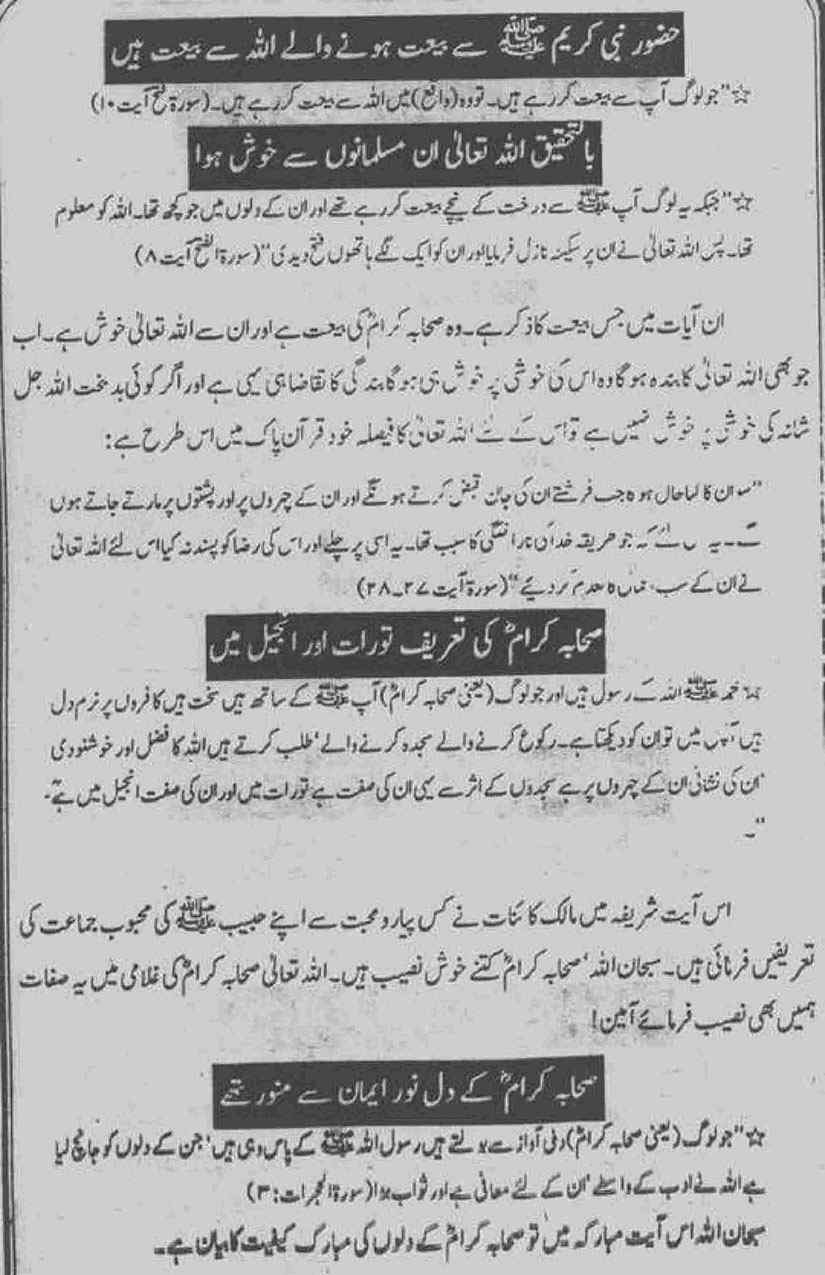 حضور نبی کریم ﷺ سے بیعت ہونے والے اللہ سے بیعت ہیں
☆"جو لوگ آپ سے بیعت کر رہے ہیں۔ تو وہ (واقع) میں اللہ سے بیعت کر رہے ہیں۔ (سورۃ فتح آیت ۱۰)
بالتحقیق اللہ تعالیٰ ان مسلمانوں سے خوش ہوا
☆"جبکہ یہ لوگ آپ ﷺ سے درخت کے نیچے بیعت کر رہے تھے اور ان کے دلوں میں جو کچھ تھا۔ اللہ کو معلوم
تھا۔ پس اللہ تعالیٰ نے ان پر سکینہ نازل فرمایا اور ان کو ایک لگے ہاتھوں فتح دیدی" (سورۃ الفتح آیت ۸)
ان آیات میں جس بیعت کا ذکر ہے۔ وہ صحابہ کرامؓ کی بیعت ہے اور ان سے اللہ تعالیٰ خوش ہے۔ اب
جو بھی اللہ تعالیٰ کا بندہ ہو گا وہ اس کی خوشی پر خوش ہی ہو گا بندگی کا تقاضا ہی یہی ہے اور اگر کوئی بدبخت اللہ جل
شانہ کی خوشی پر خوش نہیں ہے تو اس کے لئے اللہ تعالیٰ کا فیصلہ خود قرآن پاک میں اس طرح ہے:
"سو ان کا حال ہو گا جب فرشتے ان کی جان قبض کرتے ہونگے اور ان کے چہروں پر اور پشتوں پر مارتے جاتے ہوں
گے۔ یہ کہ جو طریقہ خدا کی ناراضگی کا سبب تھا۔ یہ اسی پر چلے اور اس کی رضا کو پسند نہ کیا اس لئے اللہ تعالیٰ
نے ان کے سب کر دیئے" (سورۃ آیت ۲۷۔۲۸)
صحابہ کرامؓ کی تعریف تورات اور انجیل میں
محمد ﷺ اللہ کے رسول ہیں اور جو لوگ (یعنی صحابہ کرامؓ) آپ ﷺ کے ساتھ ہیں سخت ہیں کافروں پر نرم دل
ہیں آپس میں تو ان کو دیکھتا ہے۔ رکوع کرنے والے سجدہ کرنے والے' طلب کرتے ہیں اللہ کا فضل اور خوشنودی
ان کی نشانی ان کے چہروں پر ہے سجدوں کے اثر سے یہی ان کی صفت ہے تورات میں اور ان کی صفت انجیل میں ہے۔
"۔
اس آیت شریفہ میں مالک کائنات نے کس پیار و محبت سے اپنے حبیب ﷺ کی محبوب جماعت کی
تعریفیں فرمائی ہیں۔ سبحان اللہ' صحابہ کرامؓ کتنے خوش نصیب ہیں۔ اللہ تعالیٰ صحابہ کرامؓ کی غلامی میں یہ صفات
ہمیں بھی نصیب فرمائے آمین!
صحابہ کرامؓ کے دل نور ایمان سے منور تھے
☆"جو لوگ (یعنی صحابہ کرامؓ) دبی آواز سے بولتے ہیں رسول اللہ ﷺ کے پاس وہی ہیں' جن کے دلوں کو جانچ لیا
ہے اللہ نے ادب کے واسطے' ان کے لئے معافی ہے اور ثواب بڑا (سورۃ الحجرات: ۳)
سبحان اللہ اس آیت مبارکہ میں تو صحابہ کرامؓ کے دلوں کی مبارک کیفیت کا بیان ہے۔